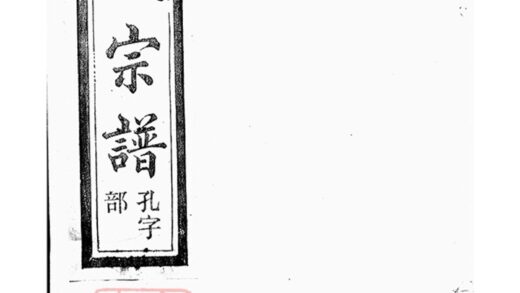 宗譜
孔字
部